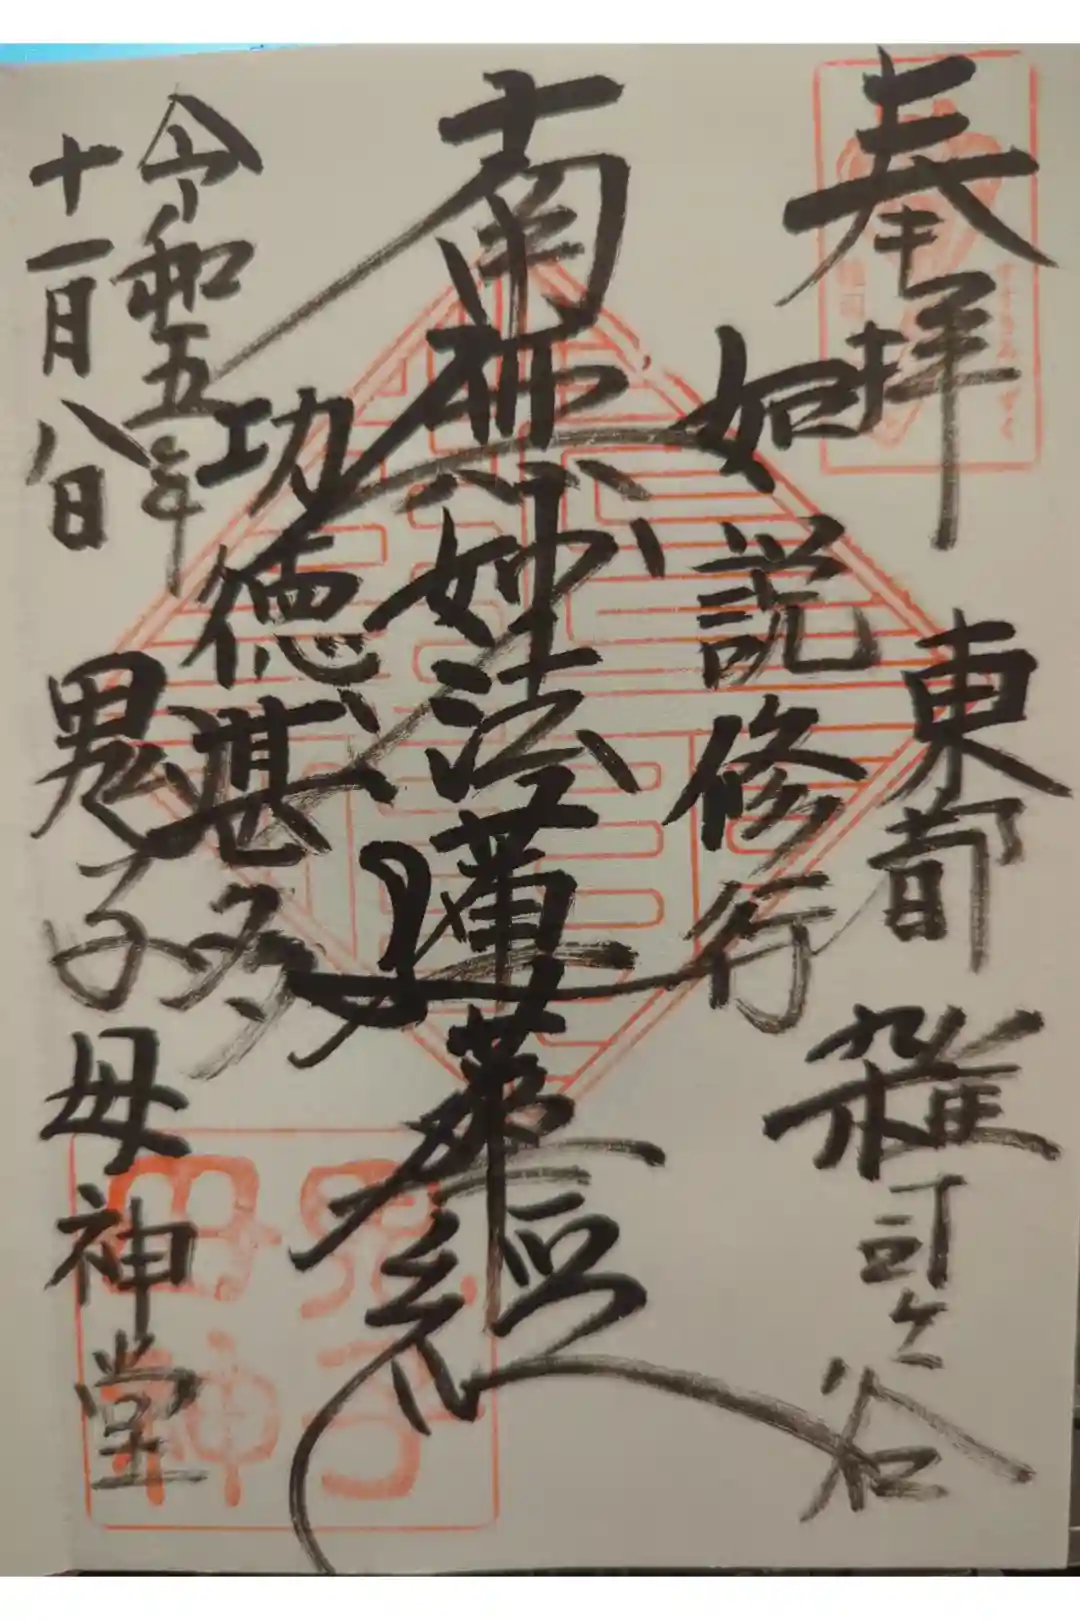 奉拝
東都 雑司ヶ谷
如説修行
南無妙法蓮華経
功徳甚多
令和五年
十一月八日
鬼子母神堂
鬼子
母神